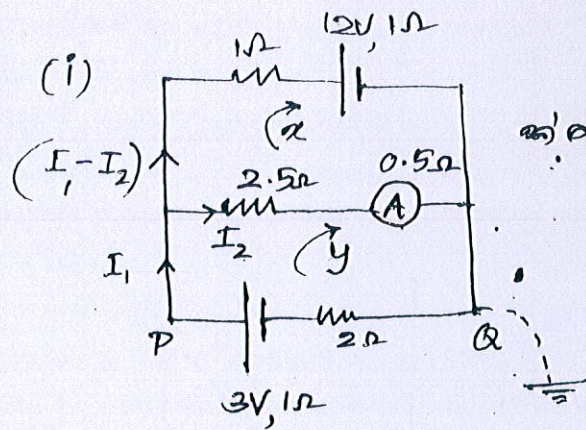 (i)
1Ω
12V, 1Ω
(x
(I₁-I₂)
2.5Ω
0.5Ω
A
I₂
(y
I₁
P
2Ω
Q
3V, 1Ω